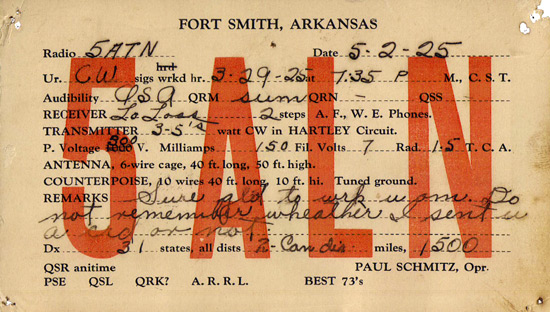 FORT SMITH, ARKANSAS
Radio 5ATN Date 5-2-25
Ur. CW sigs hrd wrkd hr. 3-29-25 at 7:35 P M., C. S. T.
Audibility QSA QRM sum QRN - QSS -
RECEIVER LoLoss 2 steps A. F., W. E. Phones.
TRANSMITTER 3-5's watt CW in HARTLEY Circuit.
P. Voltage 800 V. Milliamps 150 Fil. Volts 7 Rad. 1.5 T. C. A.
ANTENNA, 6-wire cage, 40 ft. long, 50 ft. high.
COUNTERPOISE, 10 wires 40 ft. long, 10 ft. hi. Tuned ground.
REMARKS Sure gld to wrk u om. Do
not remember wheather I sent u
a crd or not.
Dx 31 states, all dists miles, 1500
QSR anitime PAUL SCHMITZ, Opr.
PSE QSL QRK? A. R. R. L. BEST 73's
5ALN